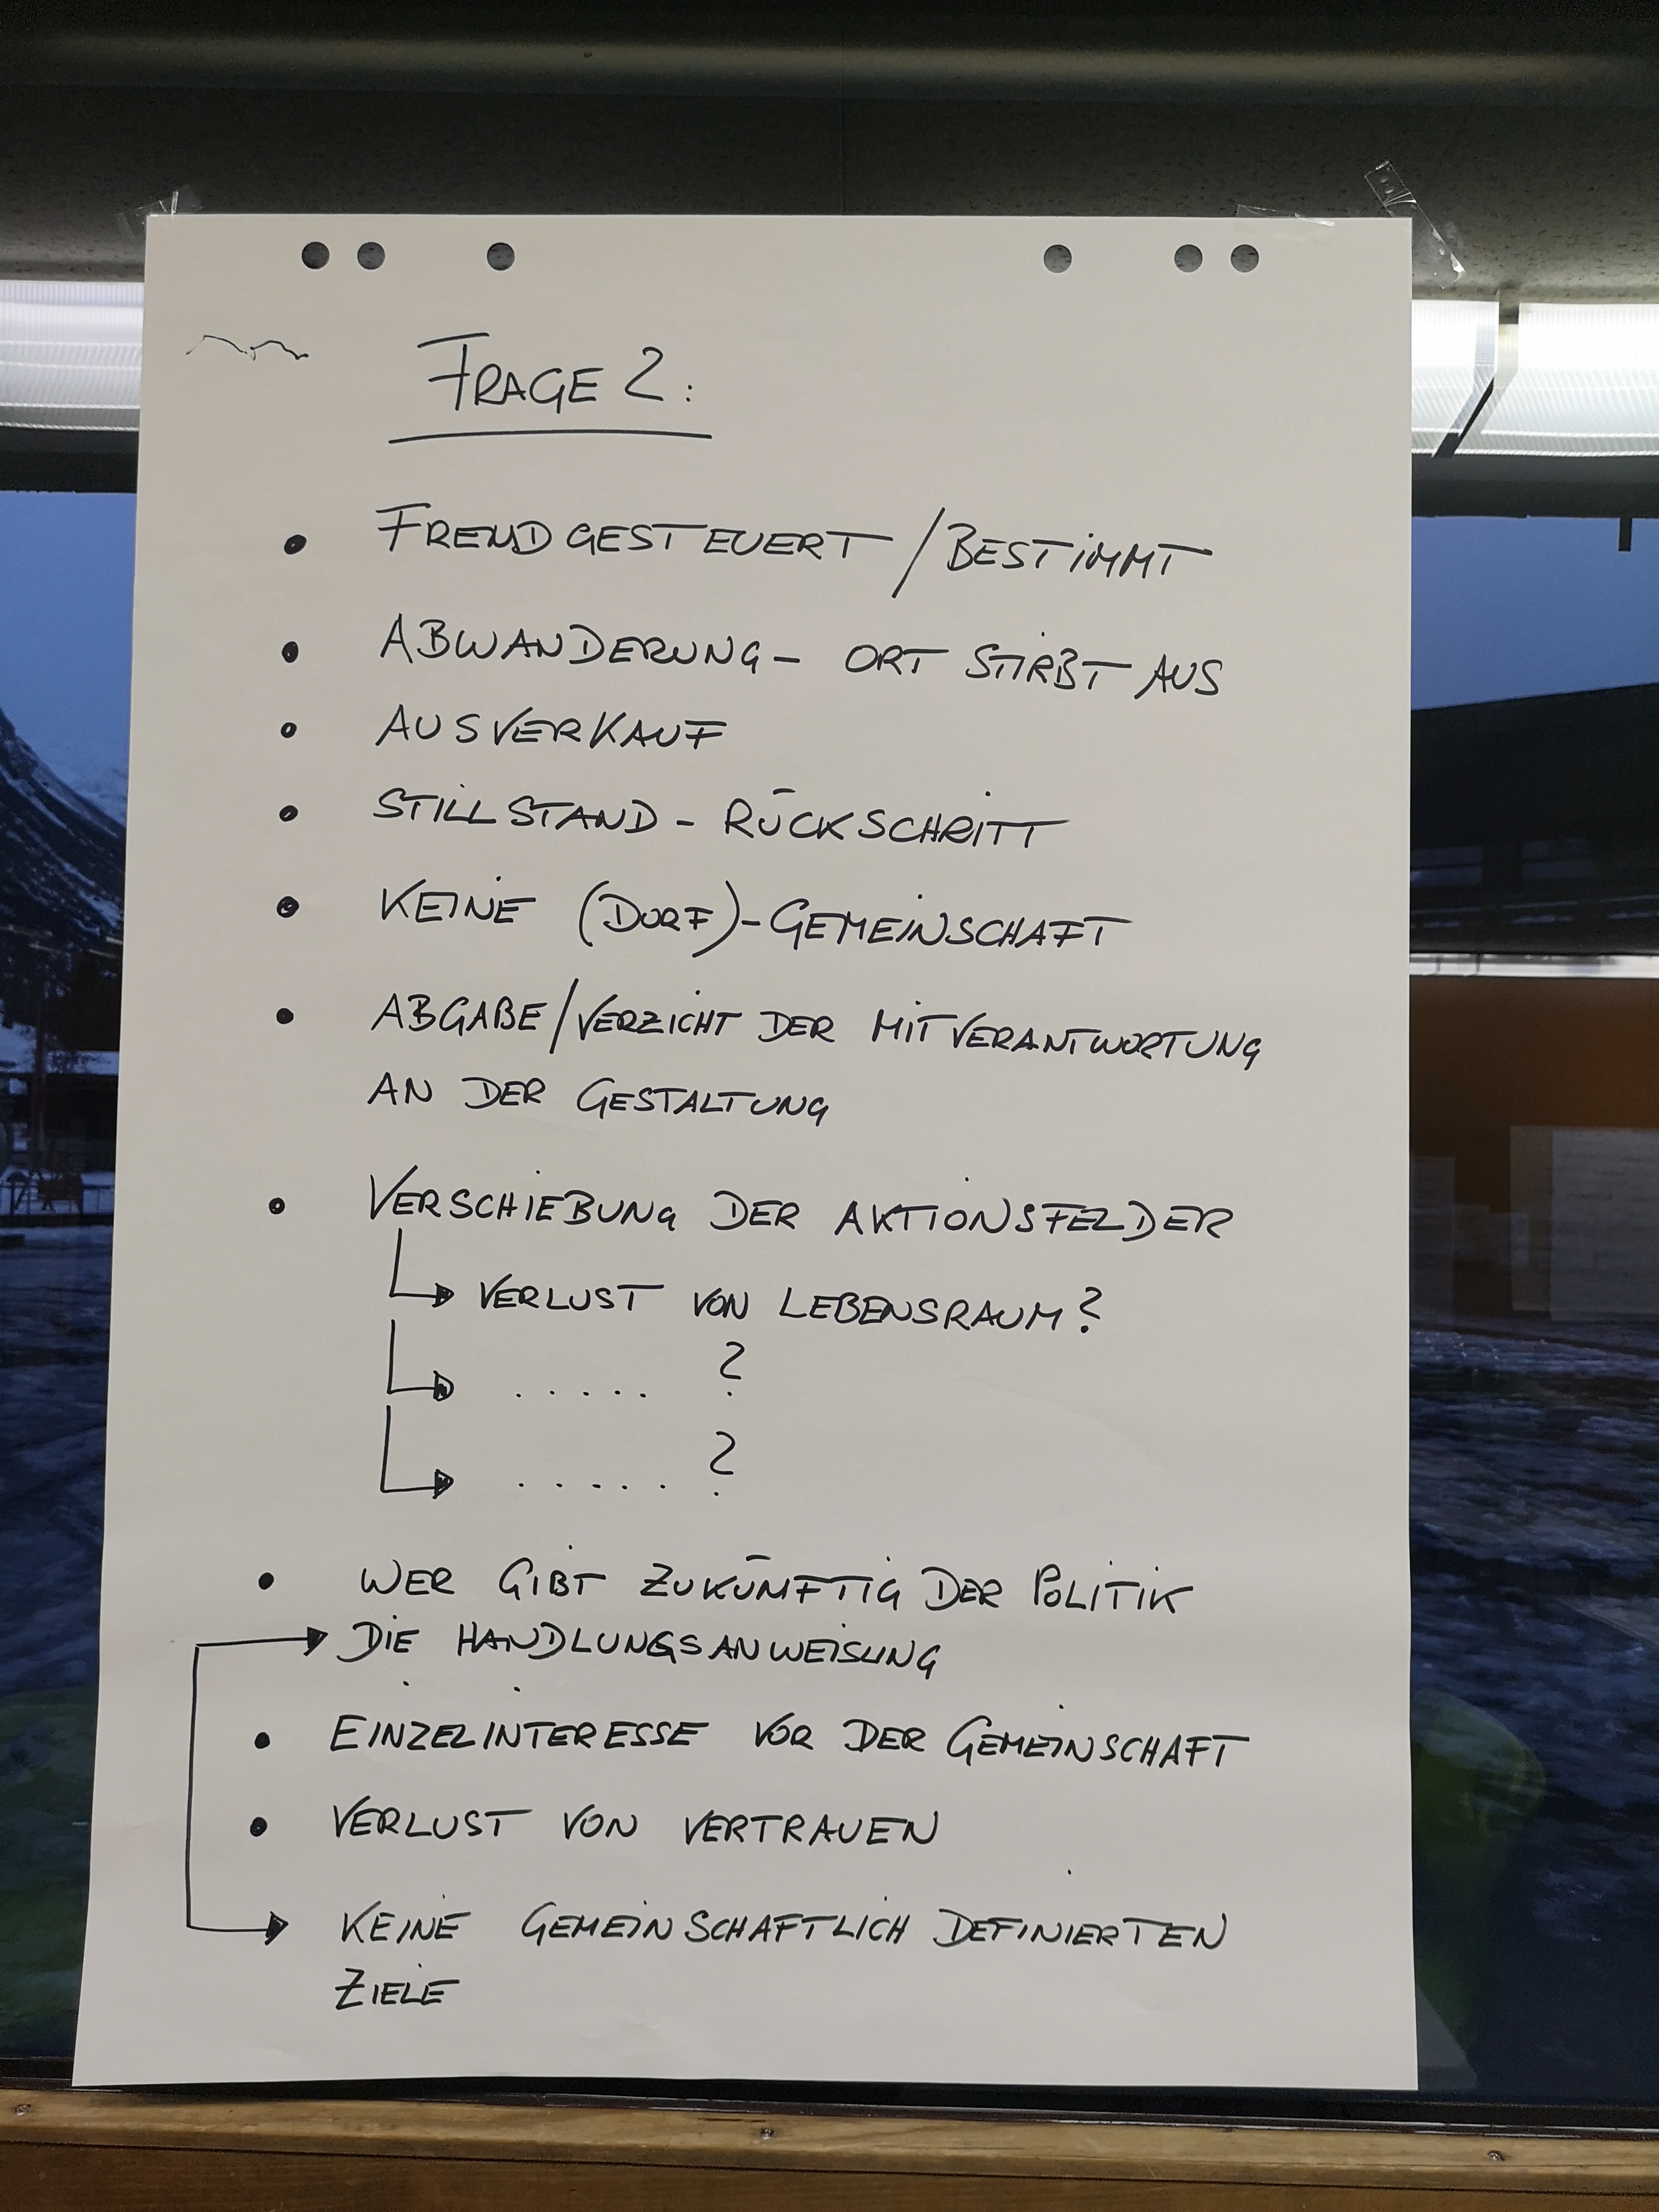 FRAGE 2:
• FREMDGESTEUERT / BESTIMMT
• ABWANDERUNG - ORT STIRBT AUS
• AUSVERKAUF
• STILLSTAND - RÜCKSCHRITT
• KEINE (DORF)-GEMEINSCHAFT
• ABGABE/VERZICHT DER MITVERANTWORTUNG
AN DER GESTALTUNG
• VERSCHIEBUNG DER AKTIONSFELDER
→ VERLUST VON LEBENSRAUM?
→ ..... ?
→ ..... ?
• WER GIBT ZUKÜNFTIG DER POLITIK
→ DIE HANDLUNGSANWEISUNG
• EINZELINTERESSE VOR DER GEMEINSCHAFT
• VERLUST VON VERTRAUEN
→ KEINE GEMEINSCHAFTLICH DEFINIERTEN
ZIELE